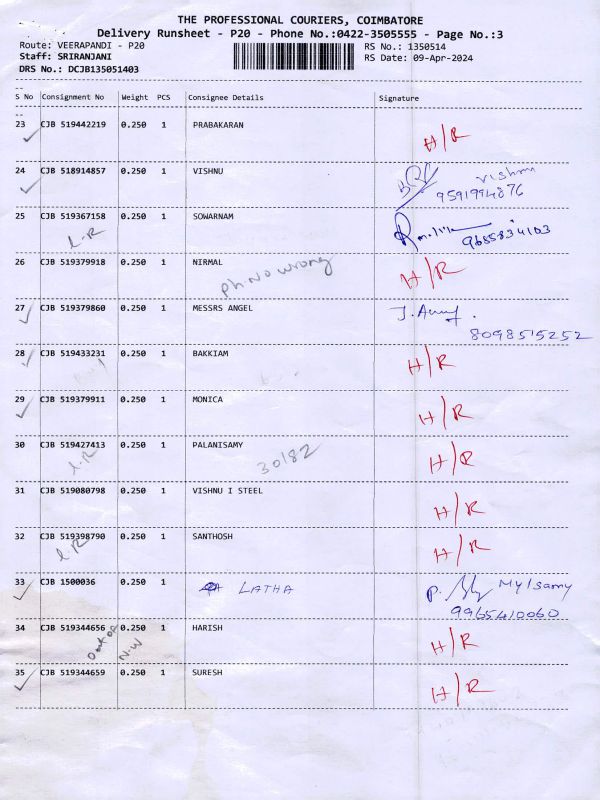 THE PROFESSIONAL COURIERS, COIMBATORE
Delivery Runsheet - P20 - Phone No.:0422-3505555 - Page No.:3
Route: VEERAPANDI - P20 RS No.: 1350514
Staff: SRIRANJANI RS Date: 09-Apr-2024
DRS No.: DCJB135051403
--
S No Consignment No Weight PCS Consignee Details Signature
--
23 CJB 519442219 0.250 1 PRABAKARAN H/R
24 CJB 518914857 0.250 1 VISHNU Vishnu
9591994876
25 CJB 519367158 0.250 1 SOWARNAM
L.R 9685834103
26 CJB 519379918 0.250 1 NIRMAL H/R
ph.No wrong
27 CJB 519379860 0.250 1 MESSRS ANGEL
8098515252
28 CJB 519433231 0.250 1 BAKKIAM H/R
29 CJB 519379911 0.250 1 MONICA H/R
30 CJB 519427413 0.250 1 PALANISAMY H/R
L.R 30182
31 CJB 519080798 0.250 1 VISHNU I STEEL H/R
32 CJB 519398790 0.250 1 SANTHOSH H/R
L.R
33 CJB 1500036 0.250 1 LATHA P. Mylsamy
9965410060
34 CJB 519344656 0.250 1 HARISH H/R
Out of N.W
35 CJB 519344659 0.250 1 SURESH H/R